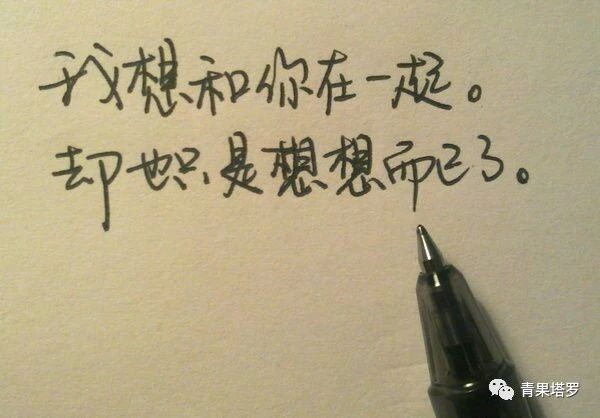 我想和你在一起。
却也只是想想而已了。
青果塔罗